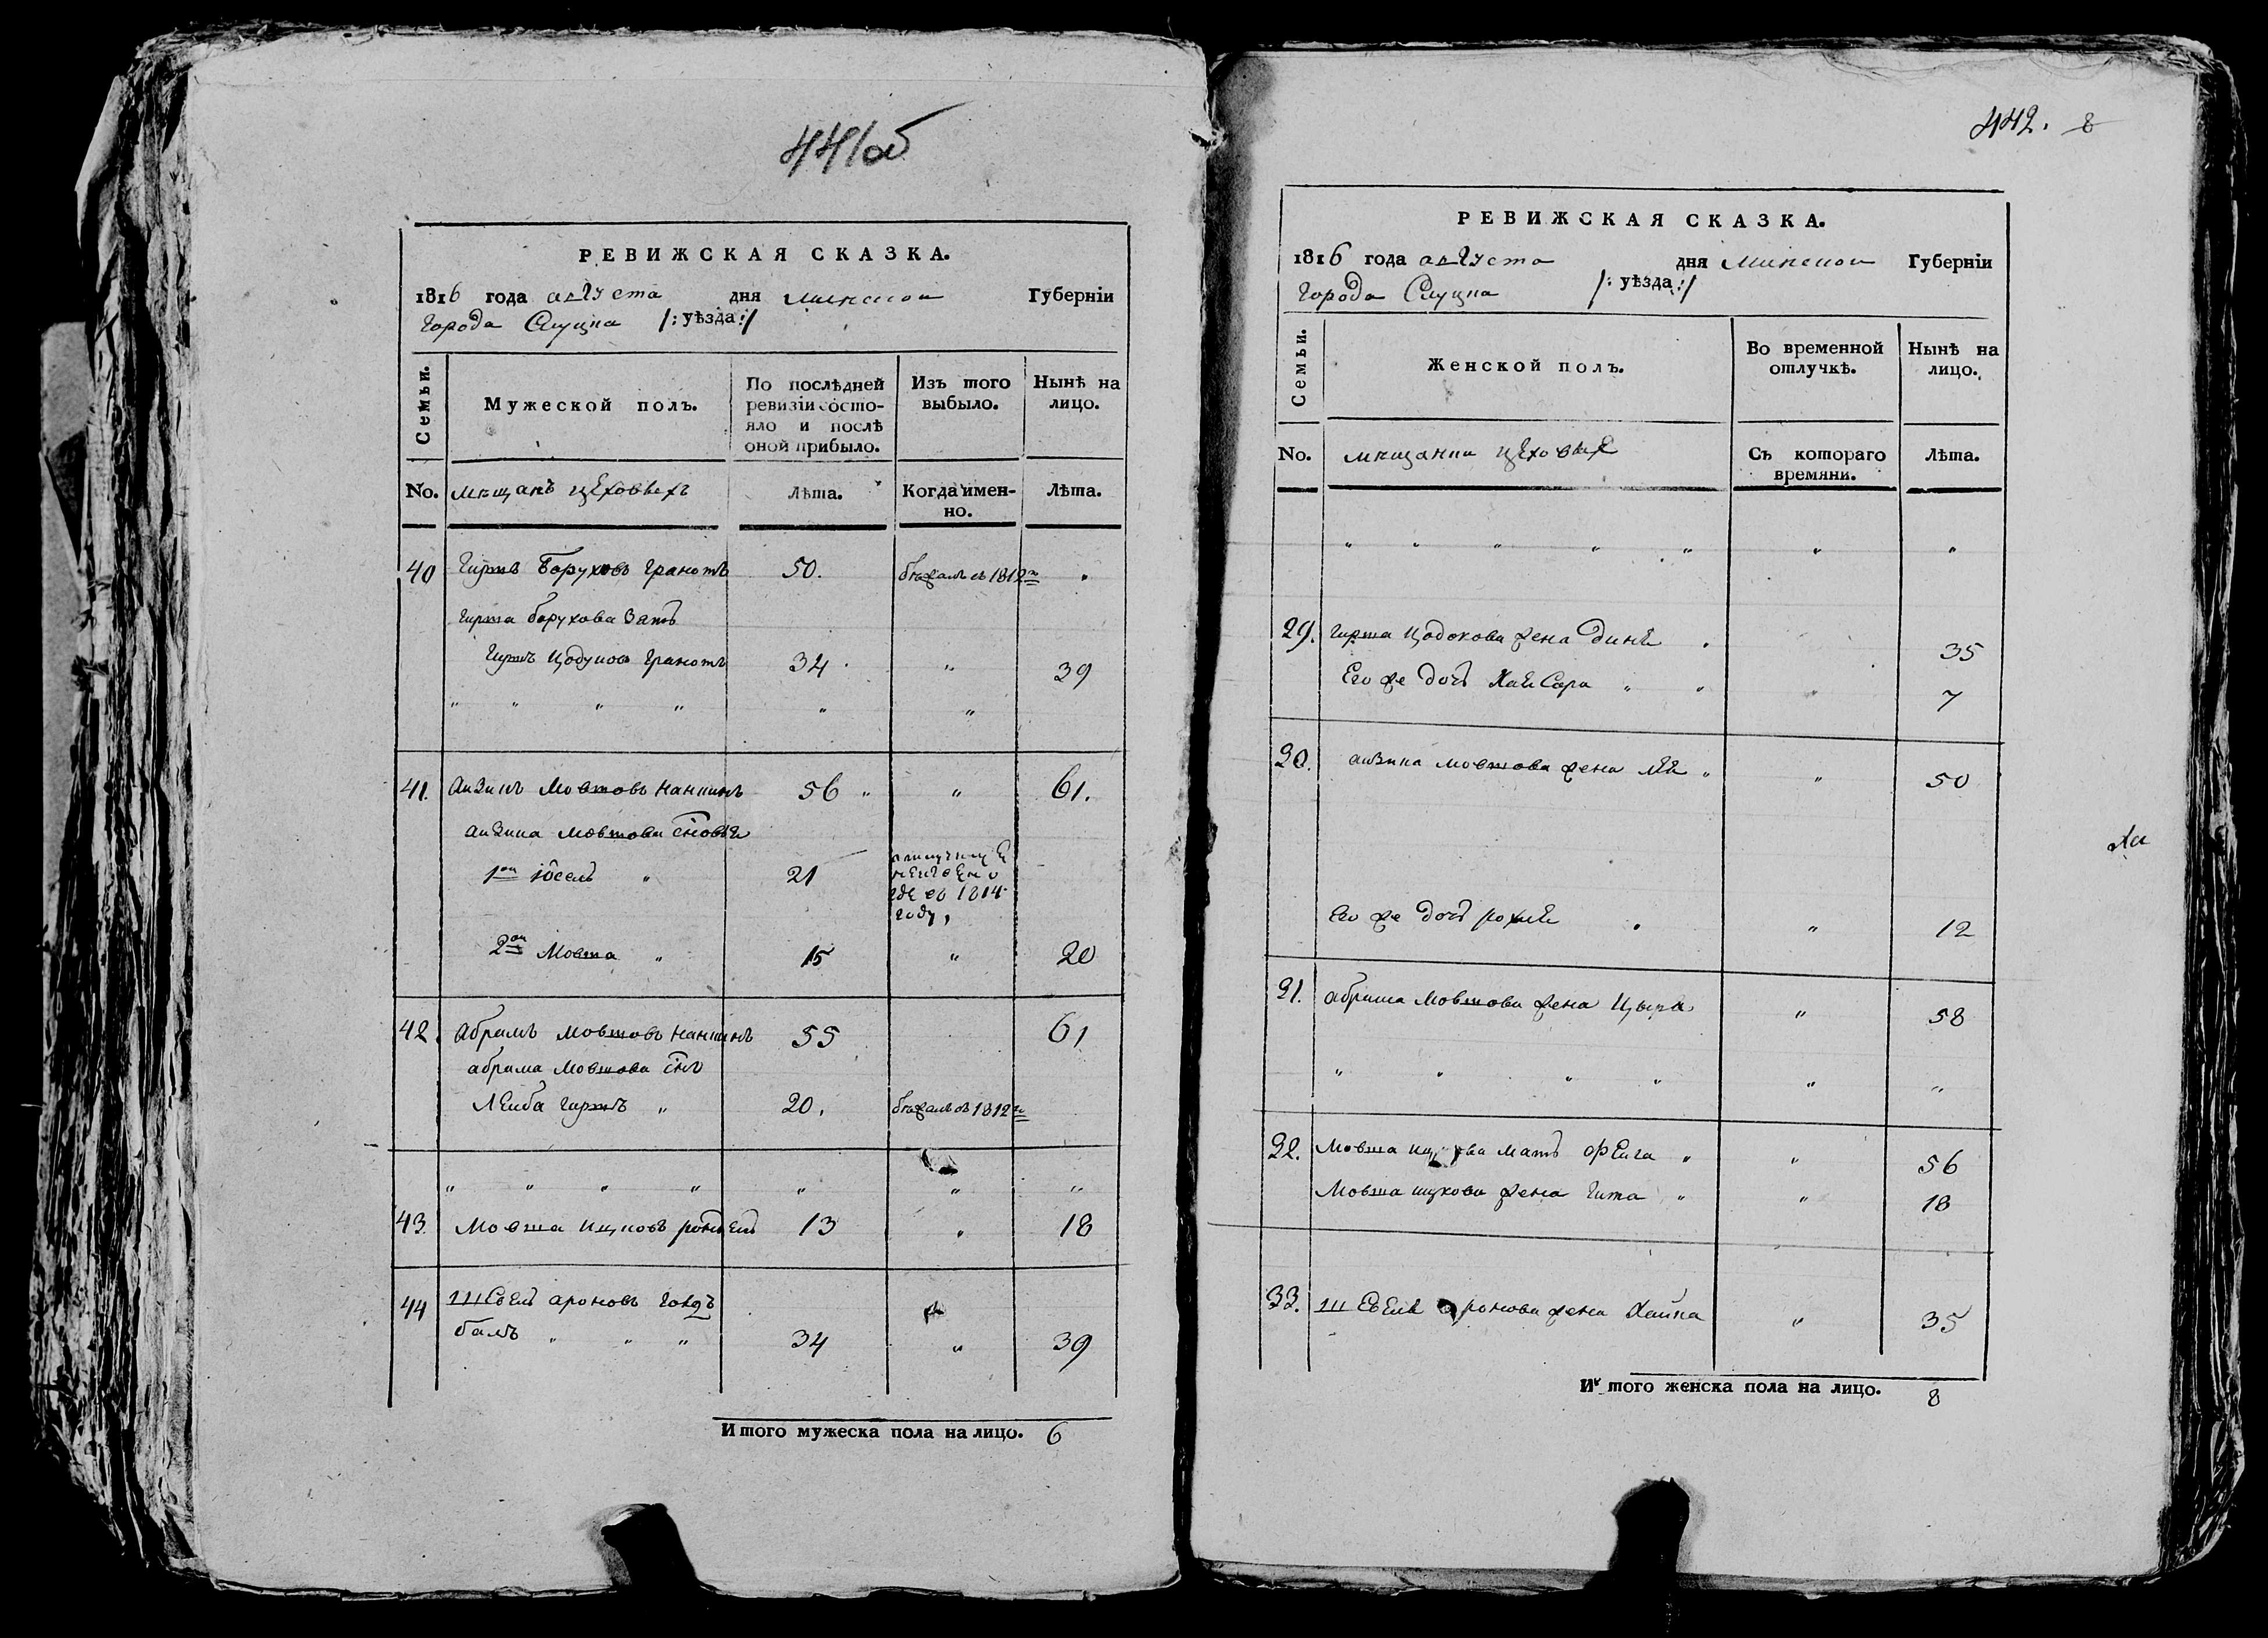 441об
РЕВИЖСКАЯ СКАЗКА.
1816 года августа дня минской Губерніи
города Слуцка /: уѣзда :/
Семьи.
Мужеской полъ.
По послѣдней ревизіи состо-
яло и послѣ
оной прибыло.
Изъ того
выбыло.
Нынѣ на
лицо.
No. мещанъ цеховыхъ
Лѣта.
Когда имен-
но.
Лѣта.
40 Гиршъ Боруховъ Гранотъ 50. бежалъ въ 1812м "
Гирша борухова Зять
Гиршъ Цодуковъ Гранотъ 34 " 39
" " " " " "
41. Айзикъ Мовшовъ 56 " " 61.
айзика мовшова сыновья
1ой Іосель " 21
где въ 1814
году,
2ой Мовша " 15 " 20
42. Абрамъ Мовшовъ 55 61
абрама мовшова сынъ
Лейба гиршъ " 20. бежалъ въ 1812м
" " " " " " "
43. Мовша Ицковъ 13 " 18
44 Шевель ароновъ
" " " 34 " 39
Итого мужеска пола на лицо. 6
442. 8
РЕВИЖСКАЯ СКАЗКА.
1816 года августа дня минской Губерніи
города Слуцка /: уѣзда :/
Семьи.
Женской полъ.
Во временной
отлучкѣ.
Нынѣ на
лицо.
No. мещанки цеховые
Съ котораго
времяни.
Лѣта.
" " " " " " "
29. гирша Цодокова жена Дине " 35
Его же дочь Хае Сора " " " 7
30. айзика мовшова жена лея " " 50
Его же дочь рохле " " 12
31. абрама мовшова жена Цыра " 58
" " " " " "
32. Мовша ицкова мать фейга " " 56
Мовша ицкова жена Гита " " 18
33. Шевеля аронова жена Хайка " 35
Итого женска пола на лицо. 8